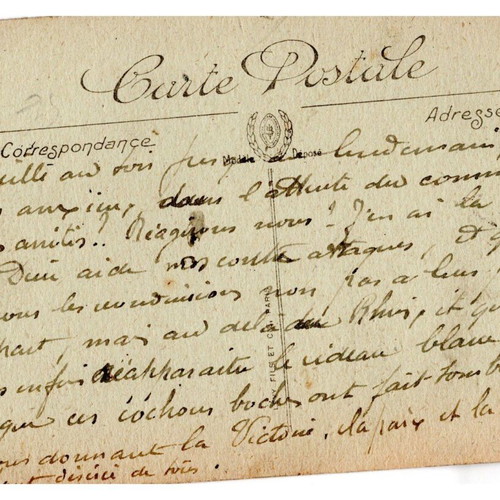 Carte Postale
Correspondance
Adresse
Modèle Déposé
au soir lendemain
anxieux, dans l'attente du comm
Réagirons nous! J'en ai la
Dieu aide nos contre attaques,
ous les reconduisions non pas à leur
part, mais au delà du Rhin, et qu
s enfin réapparaître le rideau blanc
que ces cochons boches ont fait tomb
ous donnant la Victoire, la paix et la
désiré de tous.
FILS ET CIE PARIS